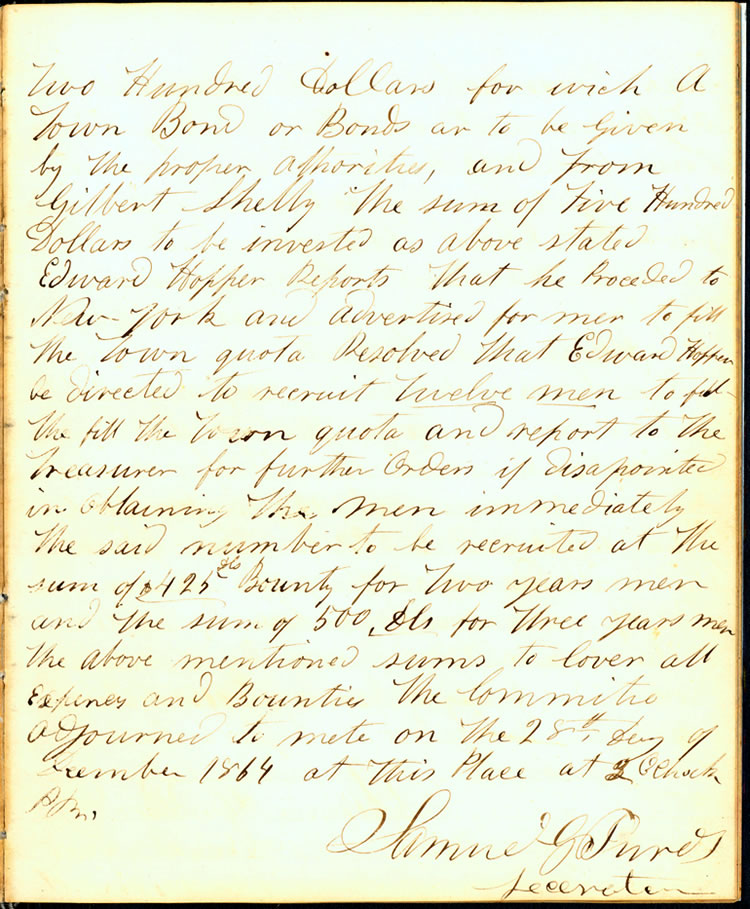 two Hundred Dollars for wich A
Town Bond or Bonds ar to be Given
by the proper athorities, and from
Gilbert Shelly the sum of Five Hundred
Dollars to be invested as above stated
Edward Hopper Reports that he Proceded to
New-York and advertised for men to fill
the Town quota Resolved that Edward Hopper
be directed to recruit twelve men to ful-
the fill the Town quota and report to the
Treasurer for further Orders if disapointed
in Obtaining the men immediately
the said number to be recruited at the
sum of $425 Dls Bounty for two years men
and the sum of 500 Dls for three years men
the above mentioned sums to Cover all
Expences and Bounties the Committe
adjourned to mete on the 28th Day of
December 1864 at this Place at 2 OClock
P.M.
Samuel G Purdy
Secretary